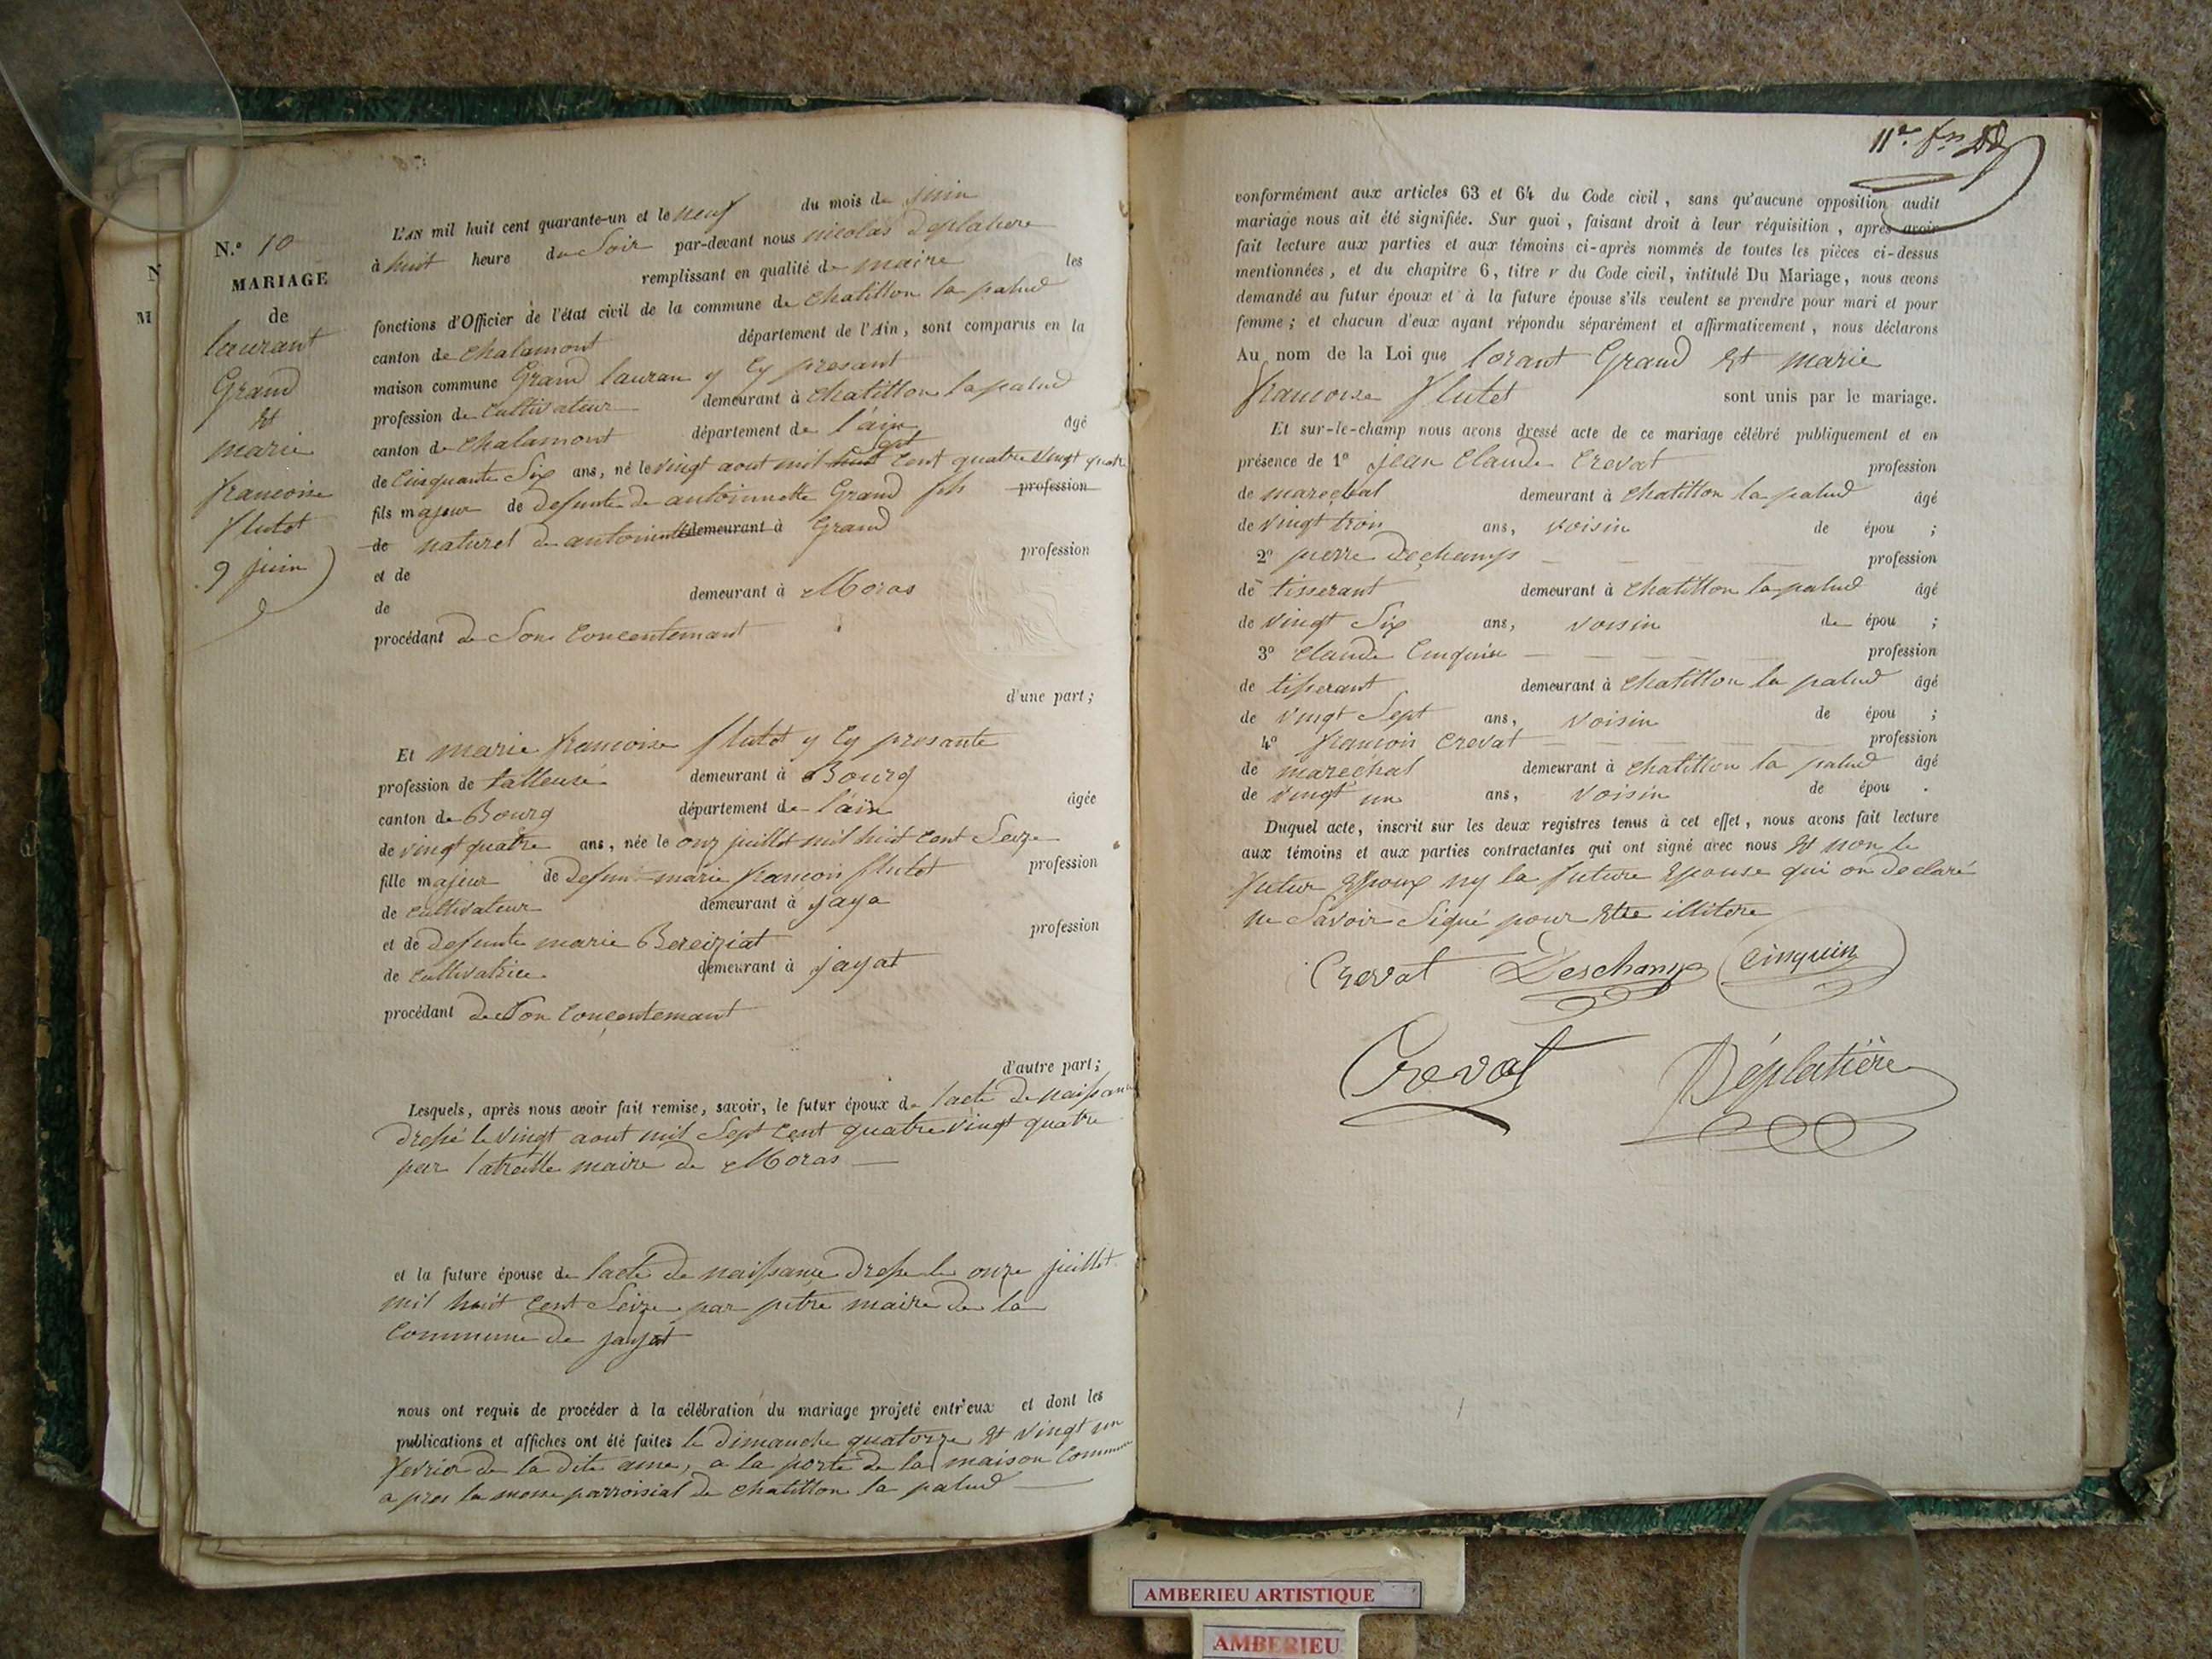 N.º 10
MARIAGE
de
laurant
Grand
et
marie
francoise
flutet
9 juin
N
M
L'AN mil huit cent quarante-un et le neuf du mois de juin
à huit heure du Soir par-devant nous nicolas Deplatiere
remplissant en qualité de maire les
fonctions d'Officier de l'état civil de la commune de chatillon la palud
canton de chalamont département de l'Ain, sont comparus en la
maison commune Grand lauran y Cy presant
profession de Cultivateur demeurant à chatillon la palud
canton de chalamont département de l'ain âgé
de Cinquante Six ans, né le vingt aout mil huit sept Cent quatre vingt quatre
fils majeur de defunte de antoinnette Grand fils profession
de naturel de antoinette demeurant à Grand
et de profession
de demeurant à Moras
procédant de Son Concentemant
d'une part;
Et marie francoise flutet y Cy presante
profession de talleuse demeurant à Bourg
canton de Bourg département de l'ain âgée
de vingt quatre ans, née le onz juillet mil huit Cent Seize
fille majeur de Defun marie francois flutet profession
de Cultivateur demeurant à jaya
et de defunte marie Bereiziat profession
de Cultivatrice demeurant à jayat
procédant de Son Concentemant
d'autre part;
Lesquels, après nous avoir fait remise, savoir, le futur époux de l'acte de naissance
dressé le vingt aout mil Sept Cent quatre vingt quatre
par latreille maire de Moras
et la future épouse de lacte de naissance dresse le onze juillet
mil huit Cent Seize par pitre maire de la
Commune de jayat
nous ont requis de procéder à la célébration du mariage projeté entr'eux et dont les
publications et affiches ont été faites le dimanche quatorze et vingt un
fevrier de la dite anne, a la porte de la maison Commune
apres la messe parroisial de chatillon la palud
conformément aux articles 63 et 64 du Code civil, sans qu'aucune opposition audit
mariage nous ait été signifiée. Sur quoi, faisant droit à leur réquisition, après avoir
fait lecture aux parties et aux témoins ci-après nommés de toutes les pièces ci-dessus
mentionnées, et du chapitre 6, titre v du Code civil, intitulé Du Mariage, nous avons
demandé au futur époux et à la future épouse s'ils veulent se prendre pour mari et pour
femme; et chacun d'eux ayant répondu séparément et affirmativement, nous déclarons
Au nom de la Loi que lorant Grand et marie
francoise flutet sont unis par le mariage.
Et sur-le-champ nous avons dressé acte de ce mariage célébré publiquement et en
présence de 1º jean Claude Crevat profession
de marechal demeurant à chatillon la palud âgé
de vingt trois ans, voisin de épou ;
2º pierre Dechamps profession
de tisserant demeurant à chatillon la palud âgé
de vingt Six ans, voisin de épou ;
3º Claude Cinquin profession
de tisserant demeurant à chatillon la palud âgé
de vingt Sept ans, voisin de épou ;
4º francois Crevat profession
de marechal demeurant à chatillon la palud âgé
de vingt un ans, voisin de épou .
Duquel acte, inscrit sur les deux registres tenus à cet effet, nous avons fait lecture
aux témoins et aux parties contractantes qui ont signé avec nous et non le
futur Epoux ny la future Epouse qui on declaré
ne Savoir Signé pour etre illitere
Crevat Deschamps Cinquin
Crevat Déplatière
AMBERIEU ARTISTIQUE
AMBERIEU